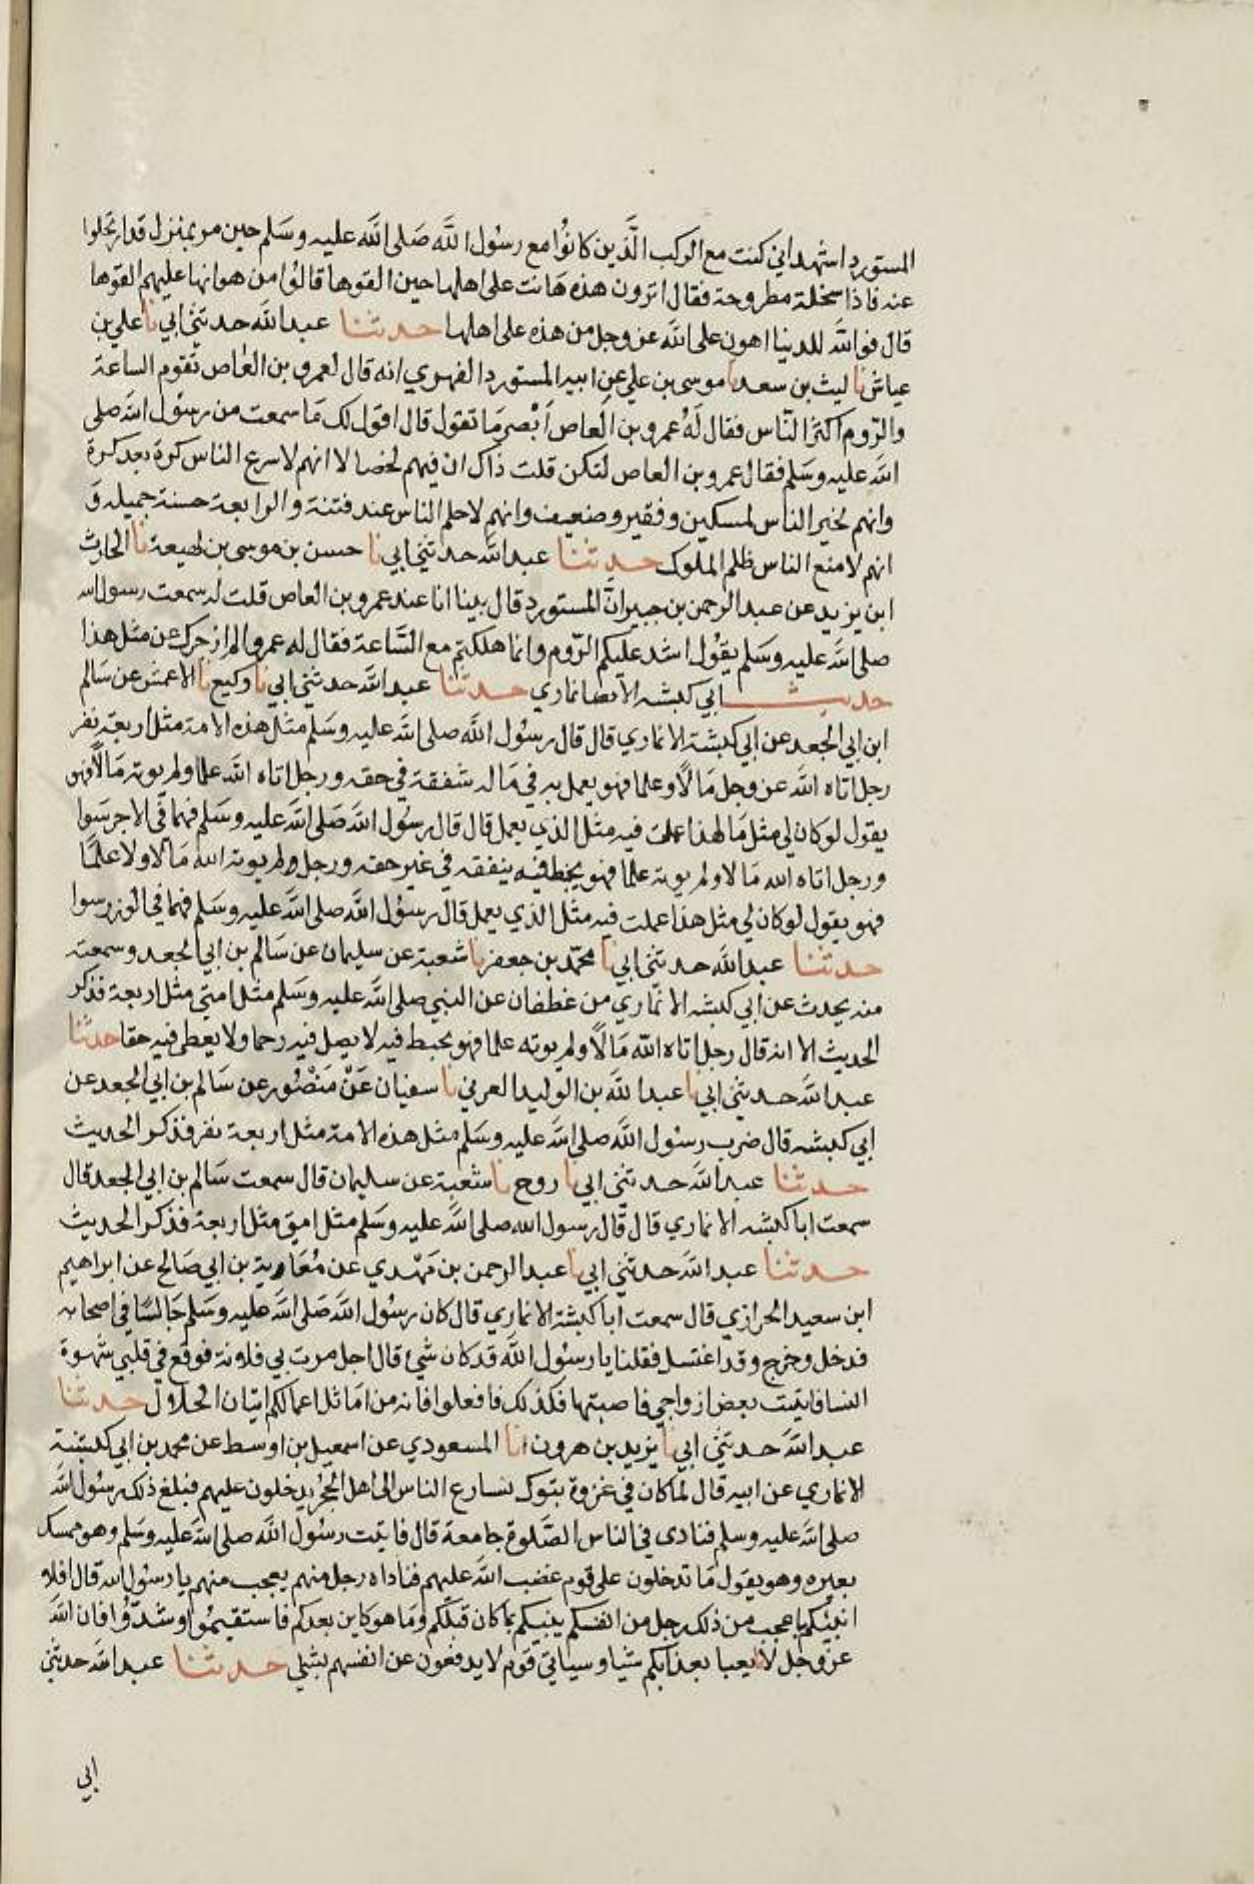 المستورد اشهد اني كنت مع الركب الذين كانوا مع رسول الله صلى الله عليه وسلم حين مر بمنزل قد ارتحلوا
عنه فاذا سخلة مطروحة فقال اترون هذه هانت على اهلها حين القوها قالوا من هوانها عليهم القوها
قال فوالله للدنيا اهون على الله عز وجل من هذه على اهلها حدثنا عبد الله حدثني ابي نا علي بن
عياش نا ليث بن سعد نا موسى بن علي عن ابيه المستورد الفهري انه قال لعمرو بن العاص تقوم الساعة
والروم اكثر الناس فقال له عمرو بن العاص ابصر ما تقول قال اقول لك ما سمعت من رسول الله صلى
الله عليه وسلم فقال عمرو بن العاص لتكن قلت ذاك ان فيهم لخصالا انهم لاسرع الناس كرة بعد كرة
وانهم لخير الناس لمسكين وفقير وضعيف وانهم لاحلم الناس عند فتنة والرابعة حسنة جميلة و
انهم لامنع الناس ظلم الملوك حدثنا عبد الله حدثني ابي نا حسن بن موسى بن لهيعة نا الحارث
ابن يزيد عن عبد الرحمن بن جبير ان المستورد قال بينا انا عند عمرو بن العاص قلت له سمعت رسول الله
صلى الله عليه وسلم يقول اشد عليكم الروم وانما هلكتهم مع الساعة فقال له عمرو الم ازجرك عن مثل هذا
حديث ابي كبشه الانماري حدثنا عبد الله حدثني ابي نا وكيع نا الاعمش عن سالم
ابن ابي الجعد عن ابي كبشة الانماري قال قال رسول الله صلى الله عليه وسلم مثل هذه الامة مثل اربعة نفر
رجل اتاه الله عز وجل مالا وعلما فهو يعمل به في ماله ينفقه في حقه ورجل اتاه الله علما ولم يوته مالا فهو
يقول لو كان لي مثل ما لهذا عملت فيه مثل الذي يعمل قال قال رسول الله صلى الله عليه وسلم فهما في الاجر سوا
ورجل اتاه الله مالا ولم يوته علما فهو يخبط فيه ينفقه في غير حقه ورجل لم يوته الله مالا ولا علما
فهو يقول لو كان لي مثل هذا عملت فيه مثل الذي يعمل قال رسول الله صلى الله عليه وسلم فهما في الوزر سوا
حدثنا عبد الله حدثني ابي نا محمد بن جعفر نا شعبة عن سليمان عن سالم بن ابي الجعد وسمعته
منه يحدث عن ابي كبشه الانماري من غطفان عن النبي صلى الله عليه وسلم مثل امتي مثل اربعة فذكر
الحديث الا انه قال رجل اتاه الله مالا ولم يوته علما فهو يخبط فيه لا يصل فيه رحما ولا يعطي فيه حقا حدثنا
عبد الله حدثني ابي نا عبد الله بن الوليد العرني نا سفيان عن منصور عن سالم بن ابي الجعد عن
ابي كبشه قال ضرب رسول الله صلى الله عليه وسلم مثل هذه الامة مثل اربعة نفر فذكر الحديث
حدثنا عبد الله حدثني ابي نا روح نا شعبة عن سليمان قال سمعت سالم بن ابي الجعد قال
سمعت ابا كبشه الانماري قال قال رسول الله صلى الله عليه وسلم مثل امتي مثل اربعة فذكر الحديث
حدثنا عبد الله حدثني ابي نا عبد الرحمن بن مهدي عن معاوية بن ابي صالح عن ابراهيم
ابن سعيد الحرازي قال سمعت ابا كبشة الانماري قال كان رسول الله صلى الله عليه وسلم جالسا في اصحابه
فدخل وخرج وقد اغتسل فقلنا يا رسول الله قد كان شئ قال اجل مرت بي فلانة فوقع في قلبي شهوة
النسا فاتيت بعض ازواجي فاصبتها فكذلك فافعلوا فانه من اماثل اعمالكم اتيان الحلال حدثنا
عبد الله حدثني ابي نا يزيد بن هرون انا المسعودي عن اسمعيل بن اوسط عن محمد بن ابي كبشة
الانماري عن ابيه قال لما كان في غزوة تبوك تسارع الناس الى اهل الحجر يدخلون عليهم فبلغ ذلك رسول الله
صلى الله عليه وسلم فنادى في الناس الصلوة جامعة قال فاتيت رسول الله صلى الله عليه وسلم وهو ممسك
بعيره وهو يقول ما تدخلون على قوم غضب الله عليهم فناداه رجل منهم يعجب منهم يا رسول الله قال افلا
انبئكم باعجب من ذلك رجل من انفسكم ينبيكم بما كان قبلكم وما هو كاين بعدكم فاستقيموا وسددوا فان الله
عز وجل لا يعبا بعذابكم شيا وسياتي قوم لا يدفعون عن انفسهم بشي حدثنا عبد الله حدثني
ابي